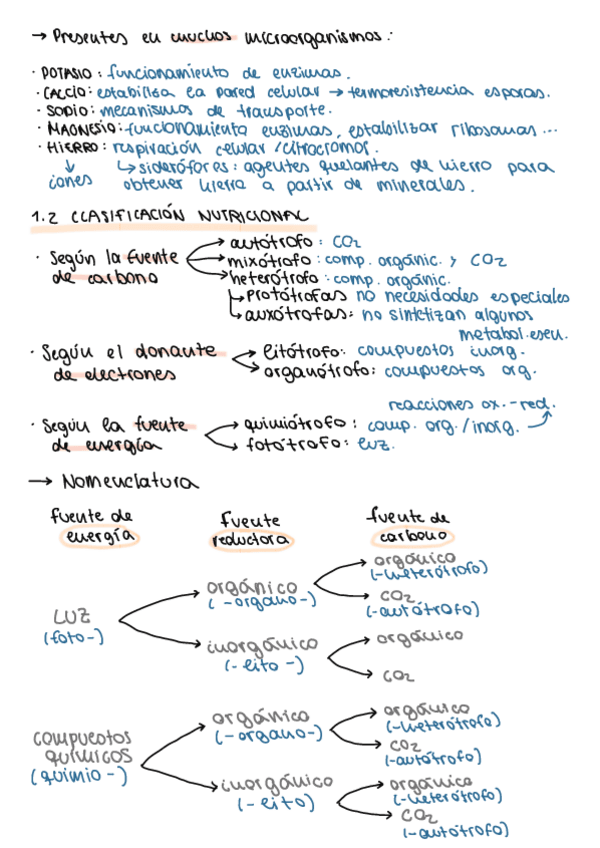 → Presentes en muchos microorganismos:
· POTASIO: funcionamiento de enzimas.
· CALCIO: estabiliza la pared celular → termoresistencia esporas.
· SODIO: mecanismos de transporte.
· MAGNESIO: funcionamiento enzimas, estabilizar ribosomas...
· HIERRO: respiración celular/citocromos.
iones
↳ sideróforos: agentes quelantes de hierro para
obtener hierro a partir de minerales.
1.2 CLASIFICACIÓN NUTRICIONAL
· Según la fuente
de carbono
autótrofo: CO2
mixótrofo: comp. orgánic. y CO2
heterótrofo: comp. orgánic.
↳ protótrofas no necesidades especiales
↳ auxótrofas: no sintetizan algunos
metabol. esen.
· Según el donante
de electrones
litótrofo: compuestos inorg.
organótrofo: compuestos org.
reacciones ox.-red.
· Según la fuente
de energía
quimiótrofo: comp. org./inorg.
fotótrofo: luz.
→ Nomenclatura
fuente de
energía
fuente
reductora
fuente de
carbono
LUZ
(foto-)
orgánico
(-organo-)
orgánico
(-heterótrofo)
CO2
(-autótrofo)
inorgánico
(-lito-)
orgánico
CO2
compuestos
químicos
(quimio-)
orgánico
(-organo-)
orgánico
(-heterótrofo)
CO2
(-autótrofo)
inorgánico
(-lito)
orgánico
(-heterótrofo)
CO2
(-autótrofo)